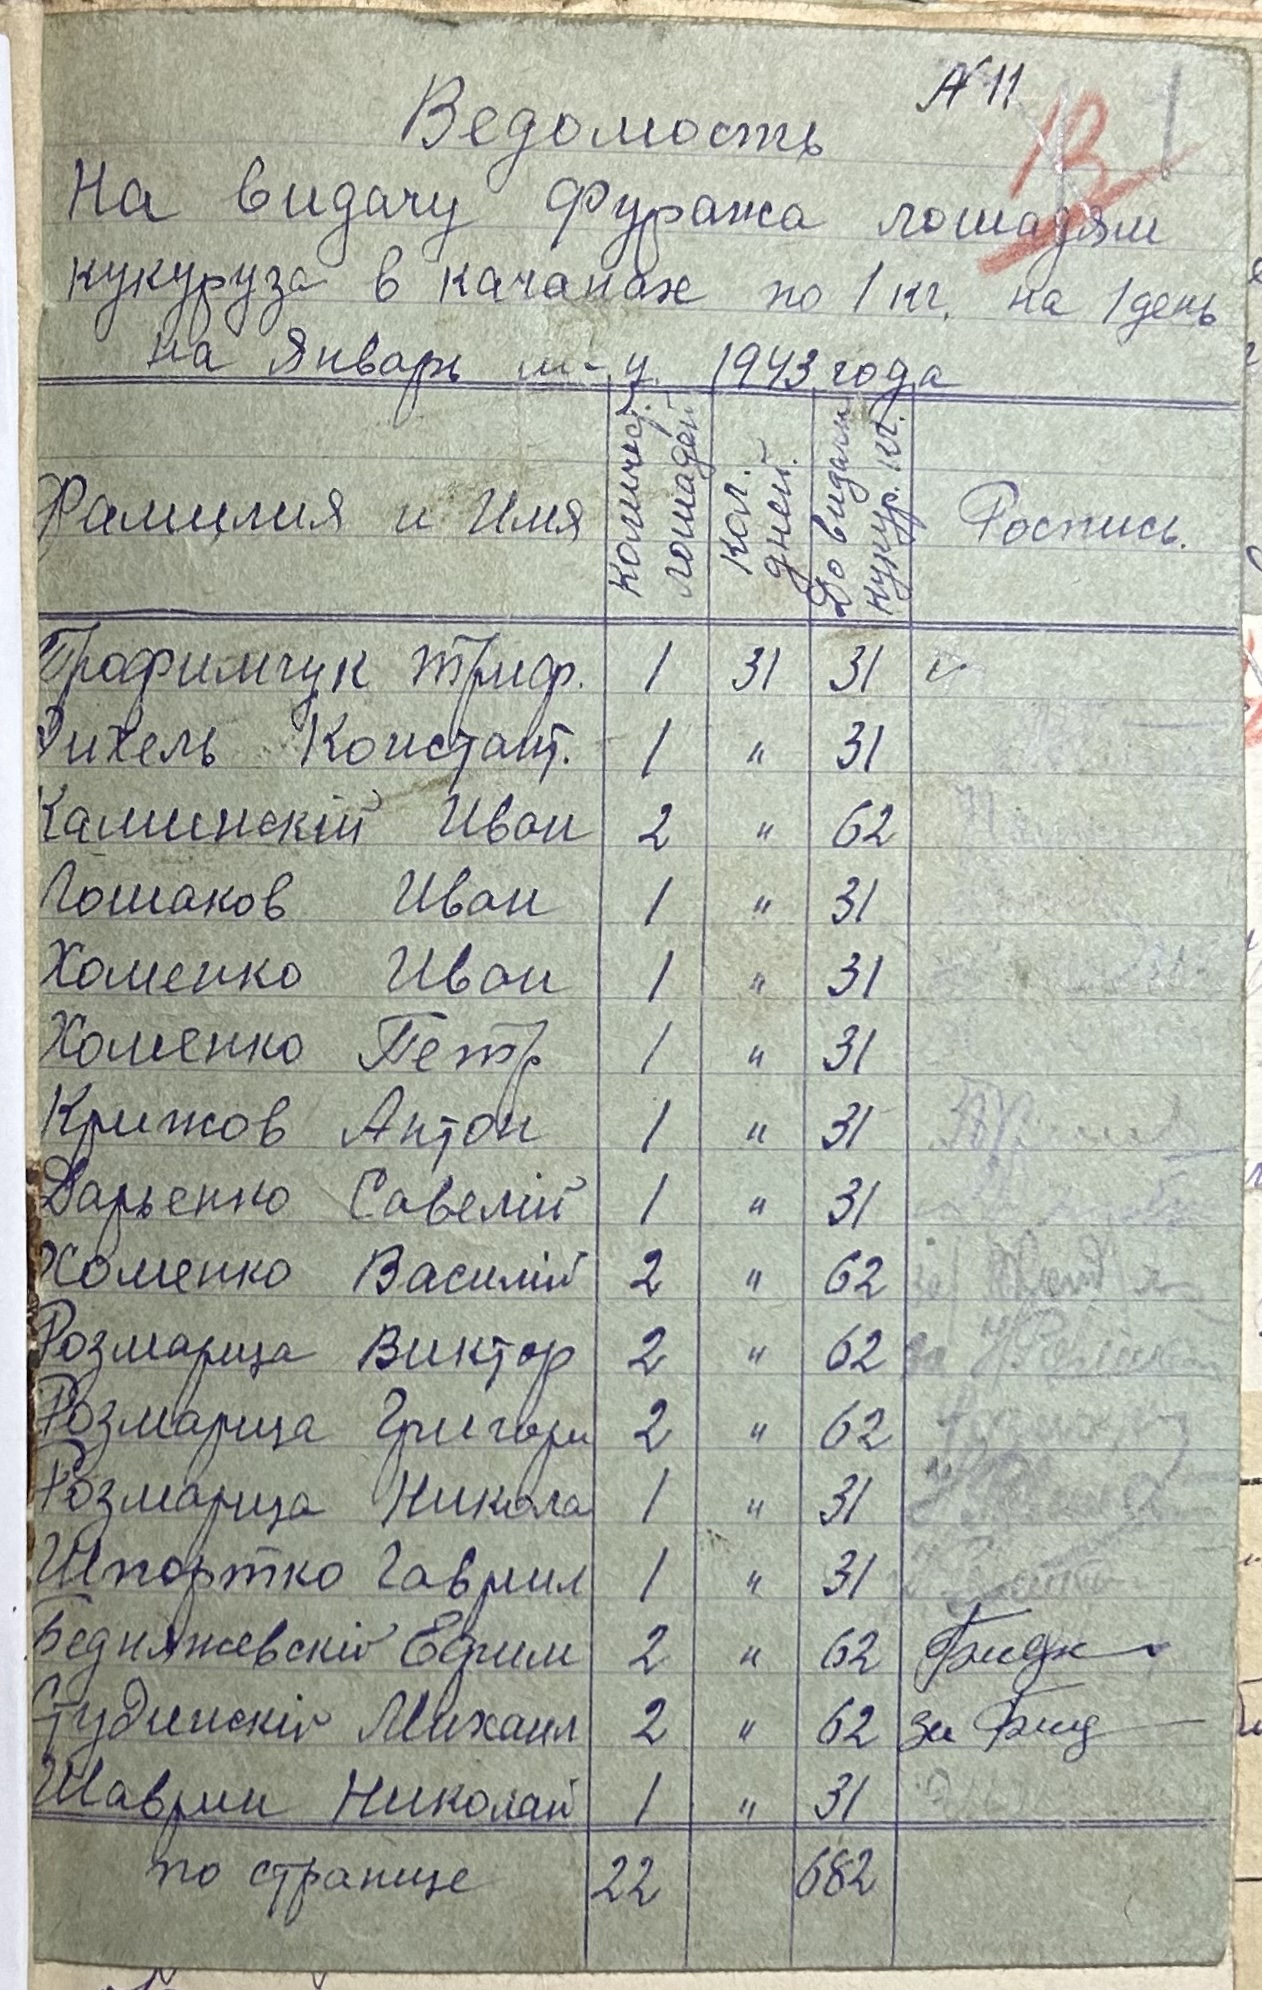 № 11
13
Ведомость
На видачу фуража лошадям
кукуруза в качанах по 1 кг. на 1 день
на Январь м-ц 1943 года
Фамилия и Имя количес. лошадей кол. дней. До видачи кукур. кг. Роспись.
Трофимчук Триф. 1 31 31
Рихель Констант. 1 " 31
Каминскій Иван 2 " 62
Гошаков Иван 1 " 31
Хоменко Иван 1 " 31
Хоменко Петр 1 " 31
Крижов Антон 1 " 31
Дарьенко Савелій 1 " 31
Хоменко Василій 2 " 62 за
Розмарица Виктор 2 " 62 за
Розмарица Григори 2 " 62
Розмарица Никола 1 " 31
Шпортко Гаврил 1 " 31
Бедняжевскій Ефим 2 " 62
Студинскій Михаил 2 " 62 за
Шаврин Николай 1 " 31
по странице 22 682